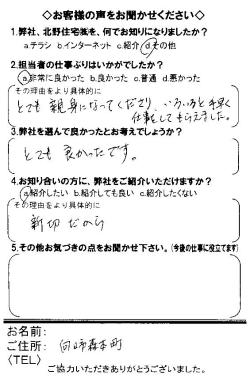 ◇お客様の声をお聞かせください◇
1.弊社、北野住宅㈱を、何でお知りになりましたか？
a.チラシ b.インターネット c.紹介 d.その他
2.担当者の仕事ぶりはいかがでしたか？
a.非常に良かった b.良かった c.普通 d.悪かった
その理由をより具体的に
とても親身になってくださり、いろいろと手早く
仕事をしてもらえました。
3.弊社を選んで良かったとお考えでしょうか？
とても良かったです。
4.お知り合いの方に、弊社をご紹介いただけますか？
a.紹介したい b.紹介しても良い c.紹介したくない
その理由をより具体的に
親切だから
5.その他お気づきの点をお聞かせ下さい。(今後の仕事に役立てます)
お名前：
ご住所： 向
森本町
〈TEL〉
ご協力いただきありがとうございました。